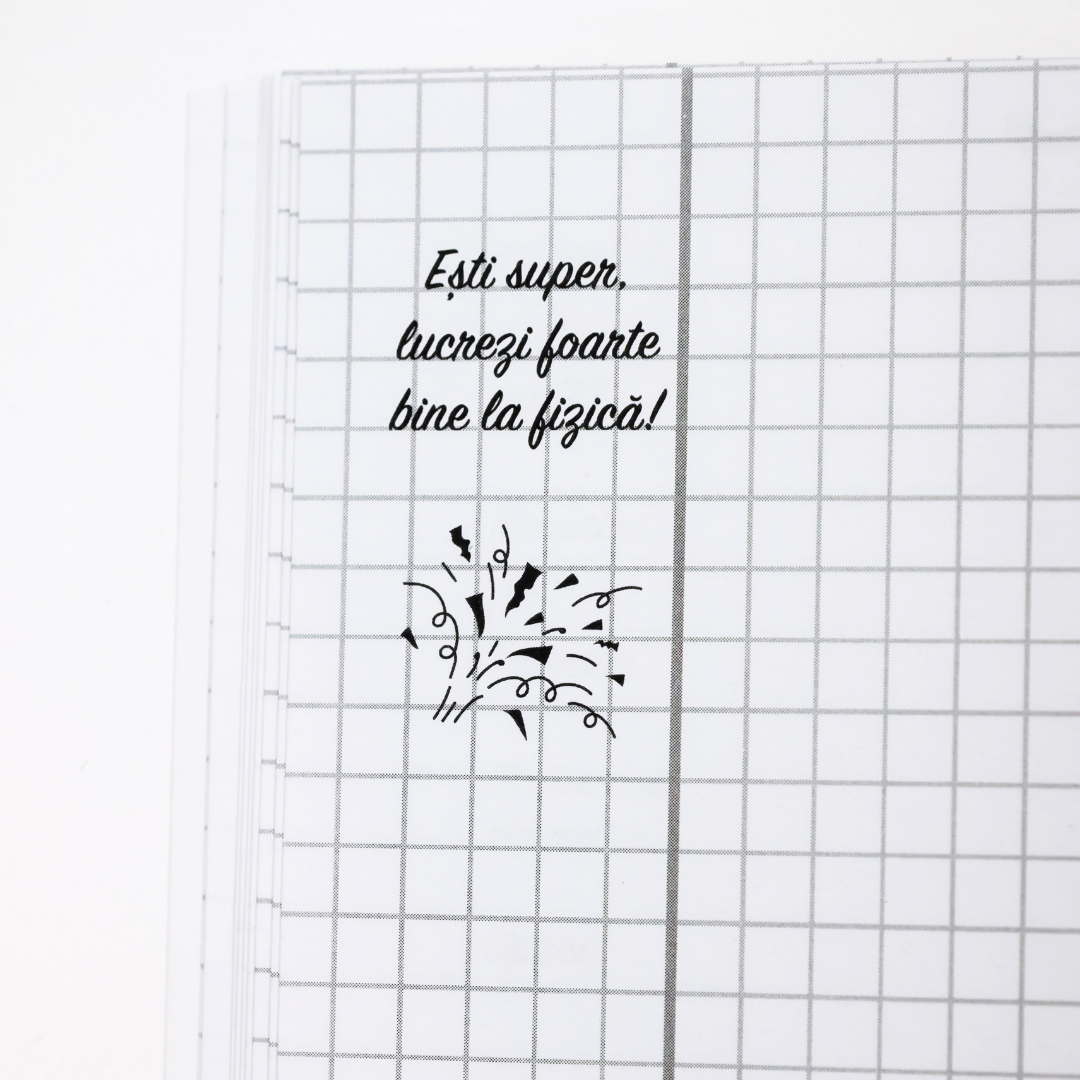 Ești super,
lucrezi foarte
bine la fizică!